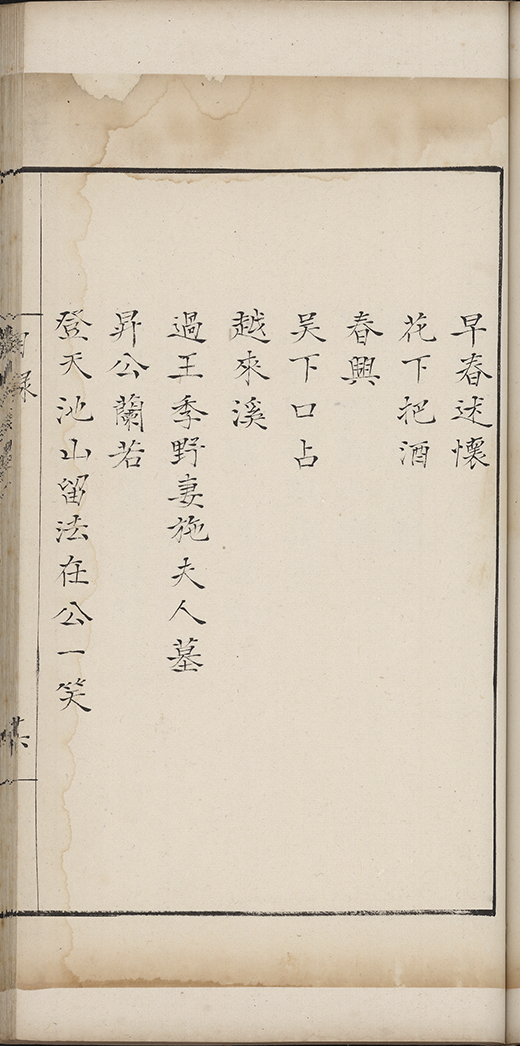 早春述懷
花下把酒
春興
吴下口占
越來溪
過王季野妻施夫人墓
昇公蘭若
登天池山留法在公一笑
目録